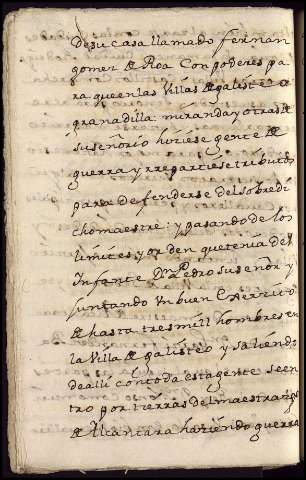 desu casa llamado fernan
gomez de Roa Con poderes pa
ra que en las Villas de galisteo
granadilla, miranda y otras de
su señorio hiciese gente de
guerra y rrepartiese tributos
para defenderse del sobredi
cho maestre: y pasando de los
limites, y orden que tenia del
Infante Dn Pedro su señor y
juntando Un buen Exercito
de hasta tres mill hombres en
la Villa de galisteo y saliendo
de alli con toda esta gente se en
tro por tierras del maestrazgo
de Alcantara haziendo guerra